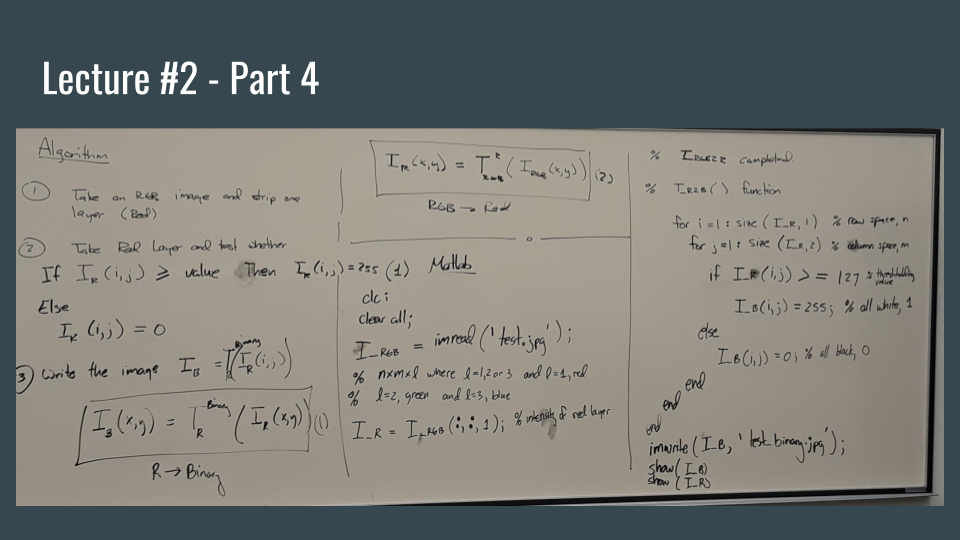 Lecture #2 - Part 4
Algorithm
1 Take an RGB image and strip one
layer (Red)
2 Take Red Layer and test whether
If I_R(i,j) ≥ value Then I_R(i,j) = 255 (1)
Else
I_R(i,j) = 0
3 Write the image I_B = T^Binary(I_R(i,j))
I_B(x,y) = T_R^Binary(I_R(x,y)) (1)
R → Binary
I_R(x,y) = T^R_RGB(I_RGB(x,y)) (2)
RGB → Red
Matlab
clc;
clear all;
I_RGB = imread('test.jpg');
% n×m×l where l=1,2 or 3 and l=1, red
% l=2, green and l=3, blue
I_R = I_RGB(:,:,1); % intensity of red layer
% IRGB2R completed.
% IR2B() function
for i=1:size(I_R,1) % row space, n
for j=1:size(I_R,2) % column space, m
if I_R(i,j) >= 127 % thresholding value
I_B(i,j) = 255; % all white, 1
else
I_B(i,j) = 0; % all black, 0
end
end
end
imwrite(I_B, 'test_binary.jpg');
show(I_B)
show(I_R)